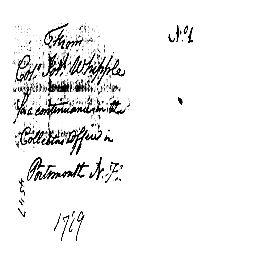 No. 1
From
Col. Jos. Whipple
for a continuance in the
Collectors Office in
Portsmouth N. H.
1789